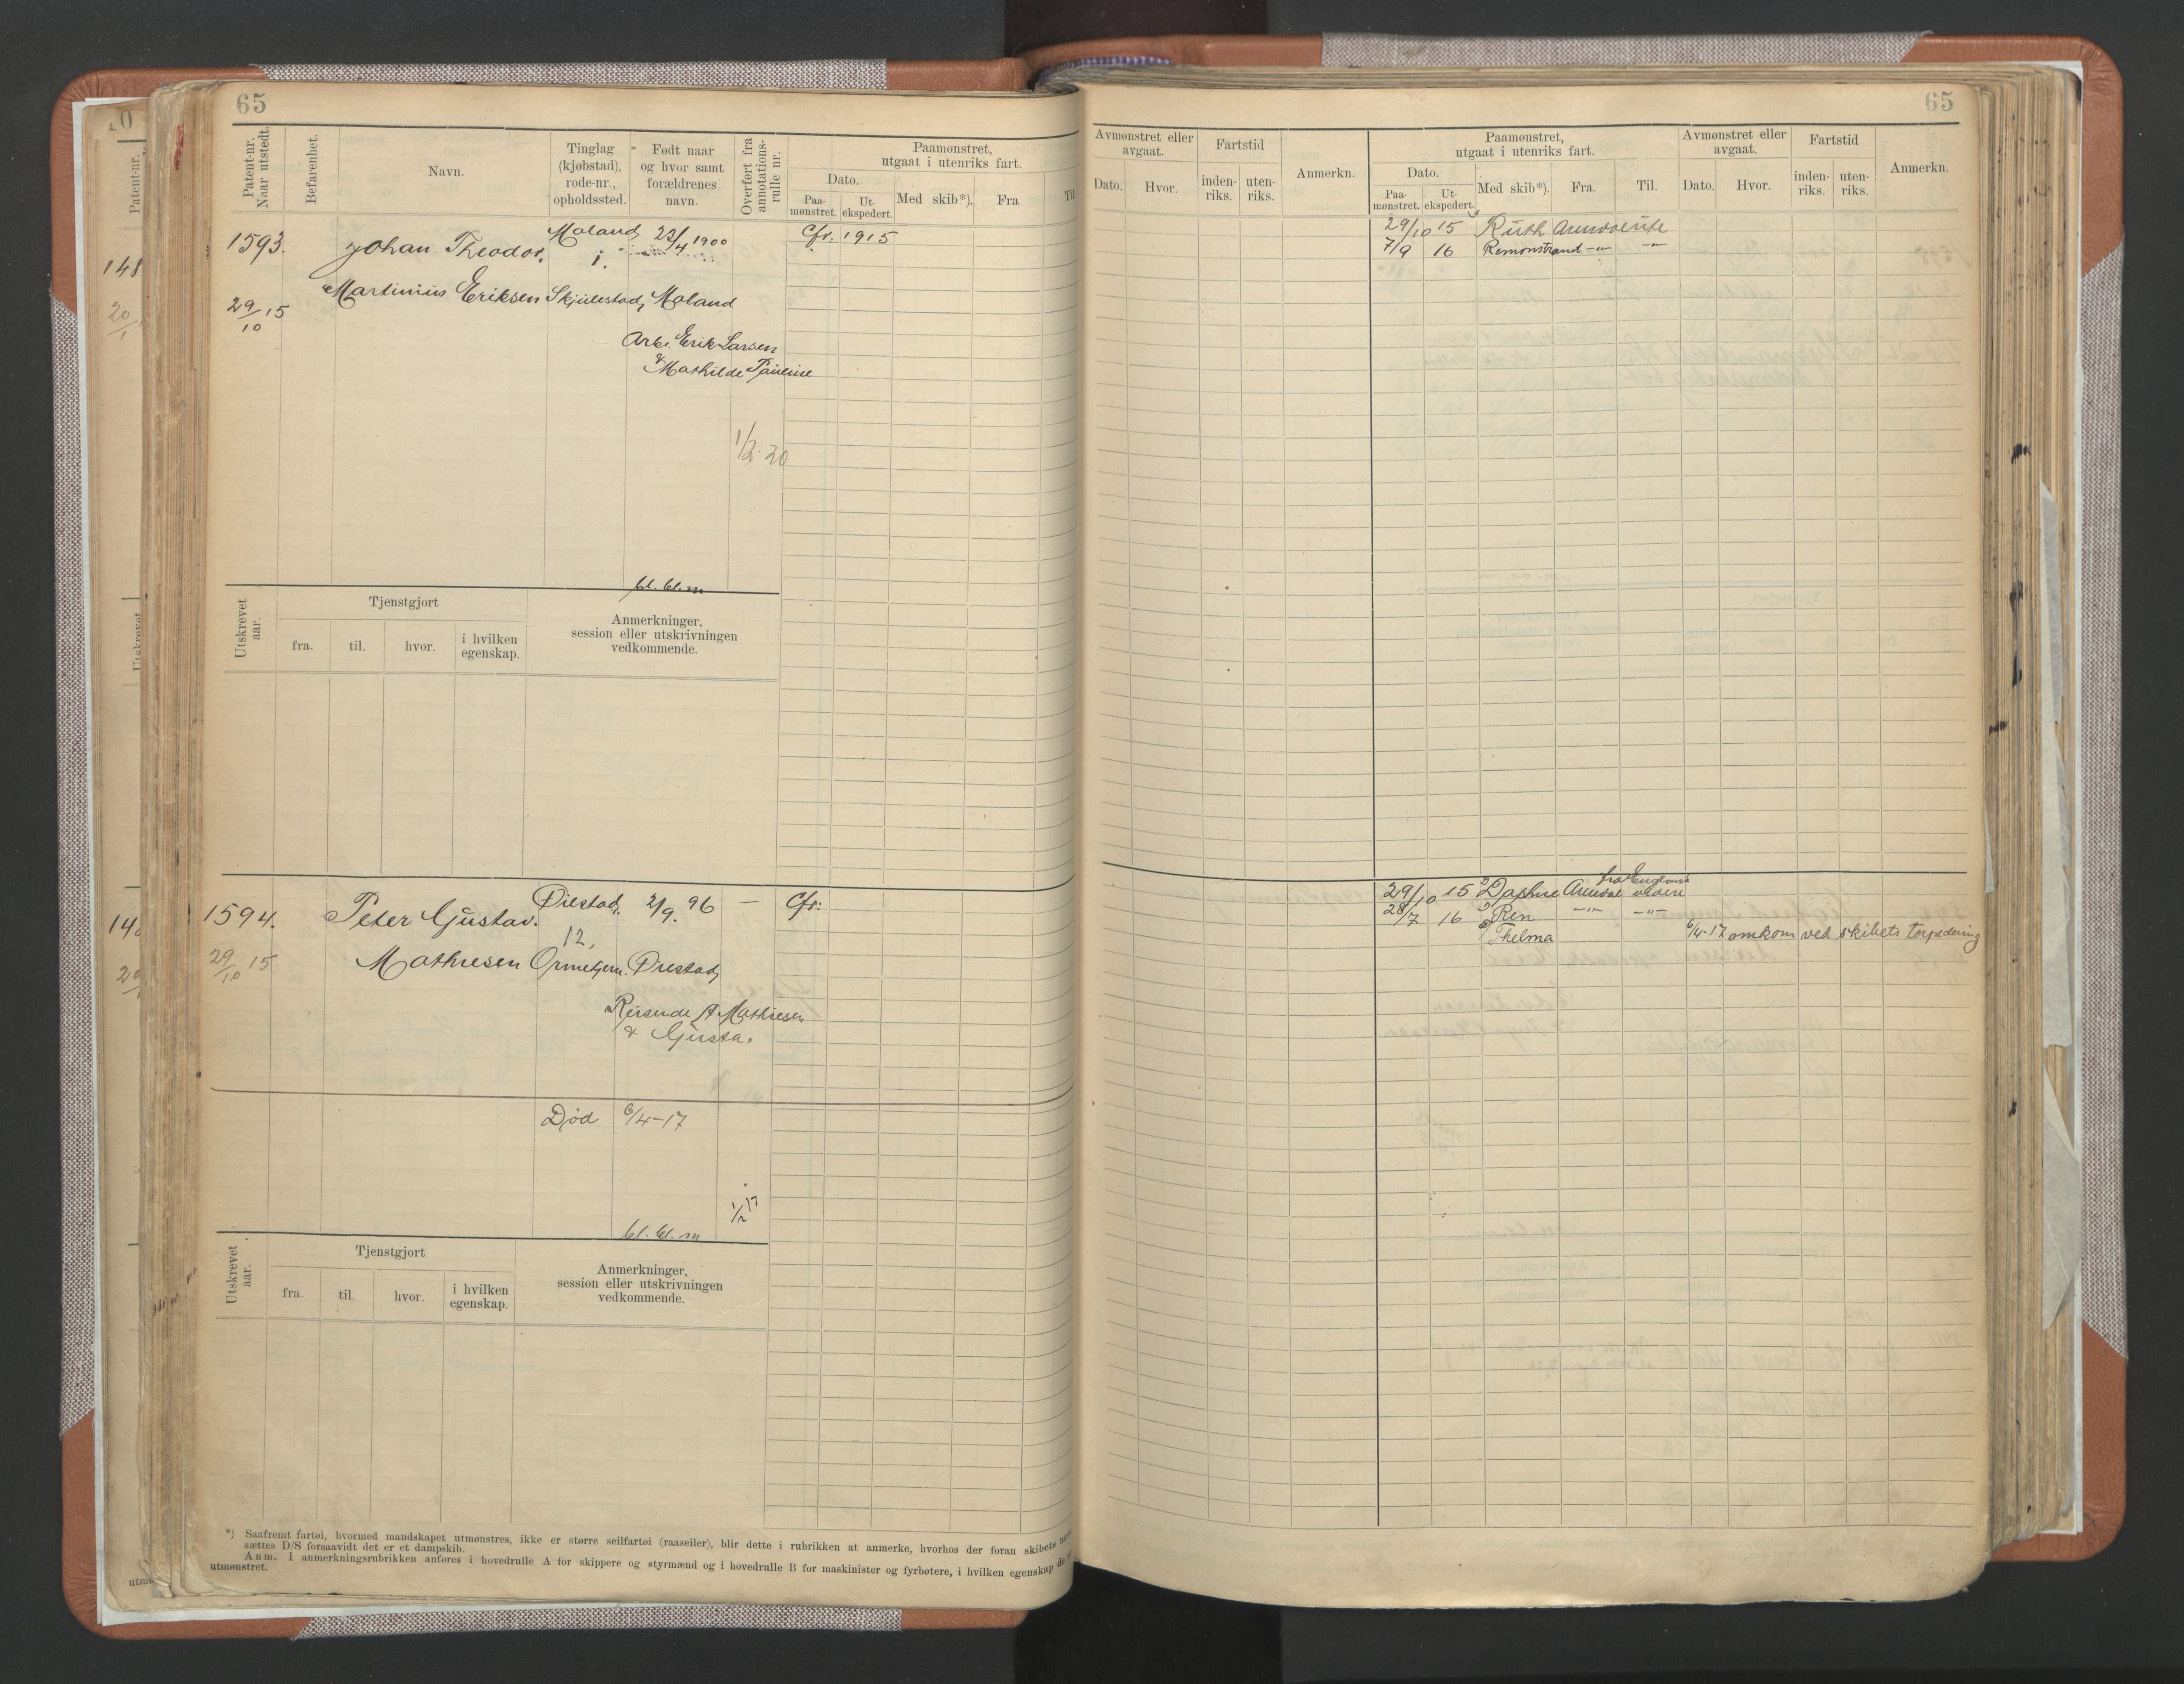 65
Patent-nr.
Naar utstedt.
Befarenhet.
Navn.
Tinglag
(kjøbstad),
rode-nr.,
opholdssted.
Født naar
og hvor samt
forældrenes
navn.
Overført fra
annotations-
rulle nr.
Paamønstret,
utgaat i utenriks fart.
Dato.
Paa-
mønstret.
Ut-
ekspedert.
Med skib*).
Fra
Til.
1593.
Johan Theodor.
Moland,
i.
23/4 1900
Cfr. 1915
29/10 15
Martinius Eriksen
Skjulestad,
Moland
Arb. Erik Larsen
& Mathilde Pauline
1/2 20
bl. bl. m
Utskrevet
aar.
Tjenstgjort
fra.
til.
hvor.
i hvilken
egenskap.
Anmerkninger,
session eller utskrivningen
vedkommende.
1594.
Peter Gustav.
Øiestad.
2/9. 96
—
Cfr:
12,
29/10 15
Mathiesen
Ormetjern.
Øiestad,
Reisende A Mathiesen
& Gusta.
Død 6/4-17
1/2 17
bl. bl. m
Utskrevet
aar.
Tjenstgjort
fra.
til.
hvor.
i hvilken
egenskap.
Anmerkninger,
session eller utskrivningen
vedkommende.
*) Saafremt fartøi, hvormed mandskapet utmønstres, ikke er større seilfartøi (raaseiler), blir dette i rubrikken at anmerke, hvorhos der foran skibets
sættes D/S forsaavidt det er et dampskib.
Anm. I anmerkningsrubrikken anføres i hovedrulle A for skippere og styrmænd og i hovedrulle B for maskinister og fyrbøtere, i hvilken egenskap de
utmønstret.
65
Avmønstret eller
avgaat.
Dato.
Hvor.
Fartstid
inden-
riks.
uten-
riks.
Anmerkn.
Paamønstret,
utgaat i utenriks fart.
Dato.
Paa-
mønstret.
Ut-
ekspedert.
Med skib*).
Fra.
Til.
Avmønstret eller
avgaat.
Dato.
Hvor.
Fartstid
inden-
riks.
uten-
riks.
Anmerkn.
29/10 15 Ruth Arendal
7/9 16 Remonstrand -"- -"-
fra England
29/10 15 Daphne Arendal videre
28/7 16 Ren -"- -"-
Thelma 6/4-17 omkom ved skibets torpedering